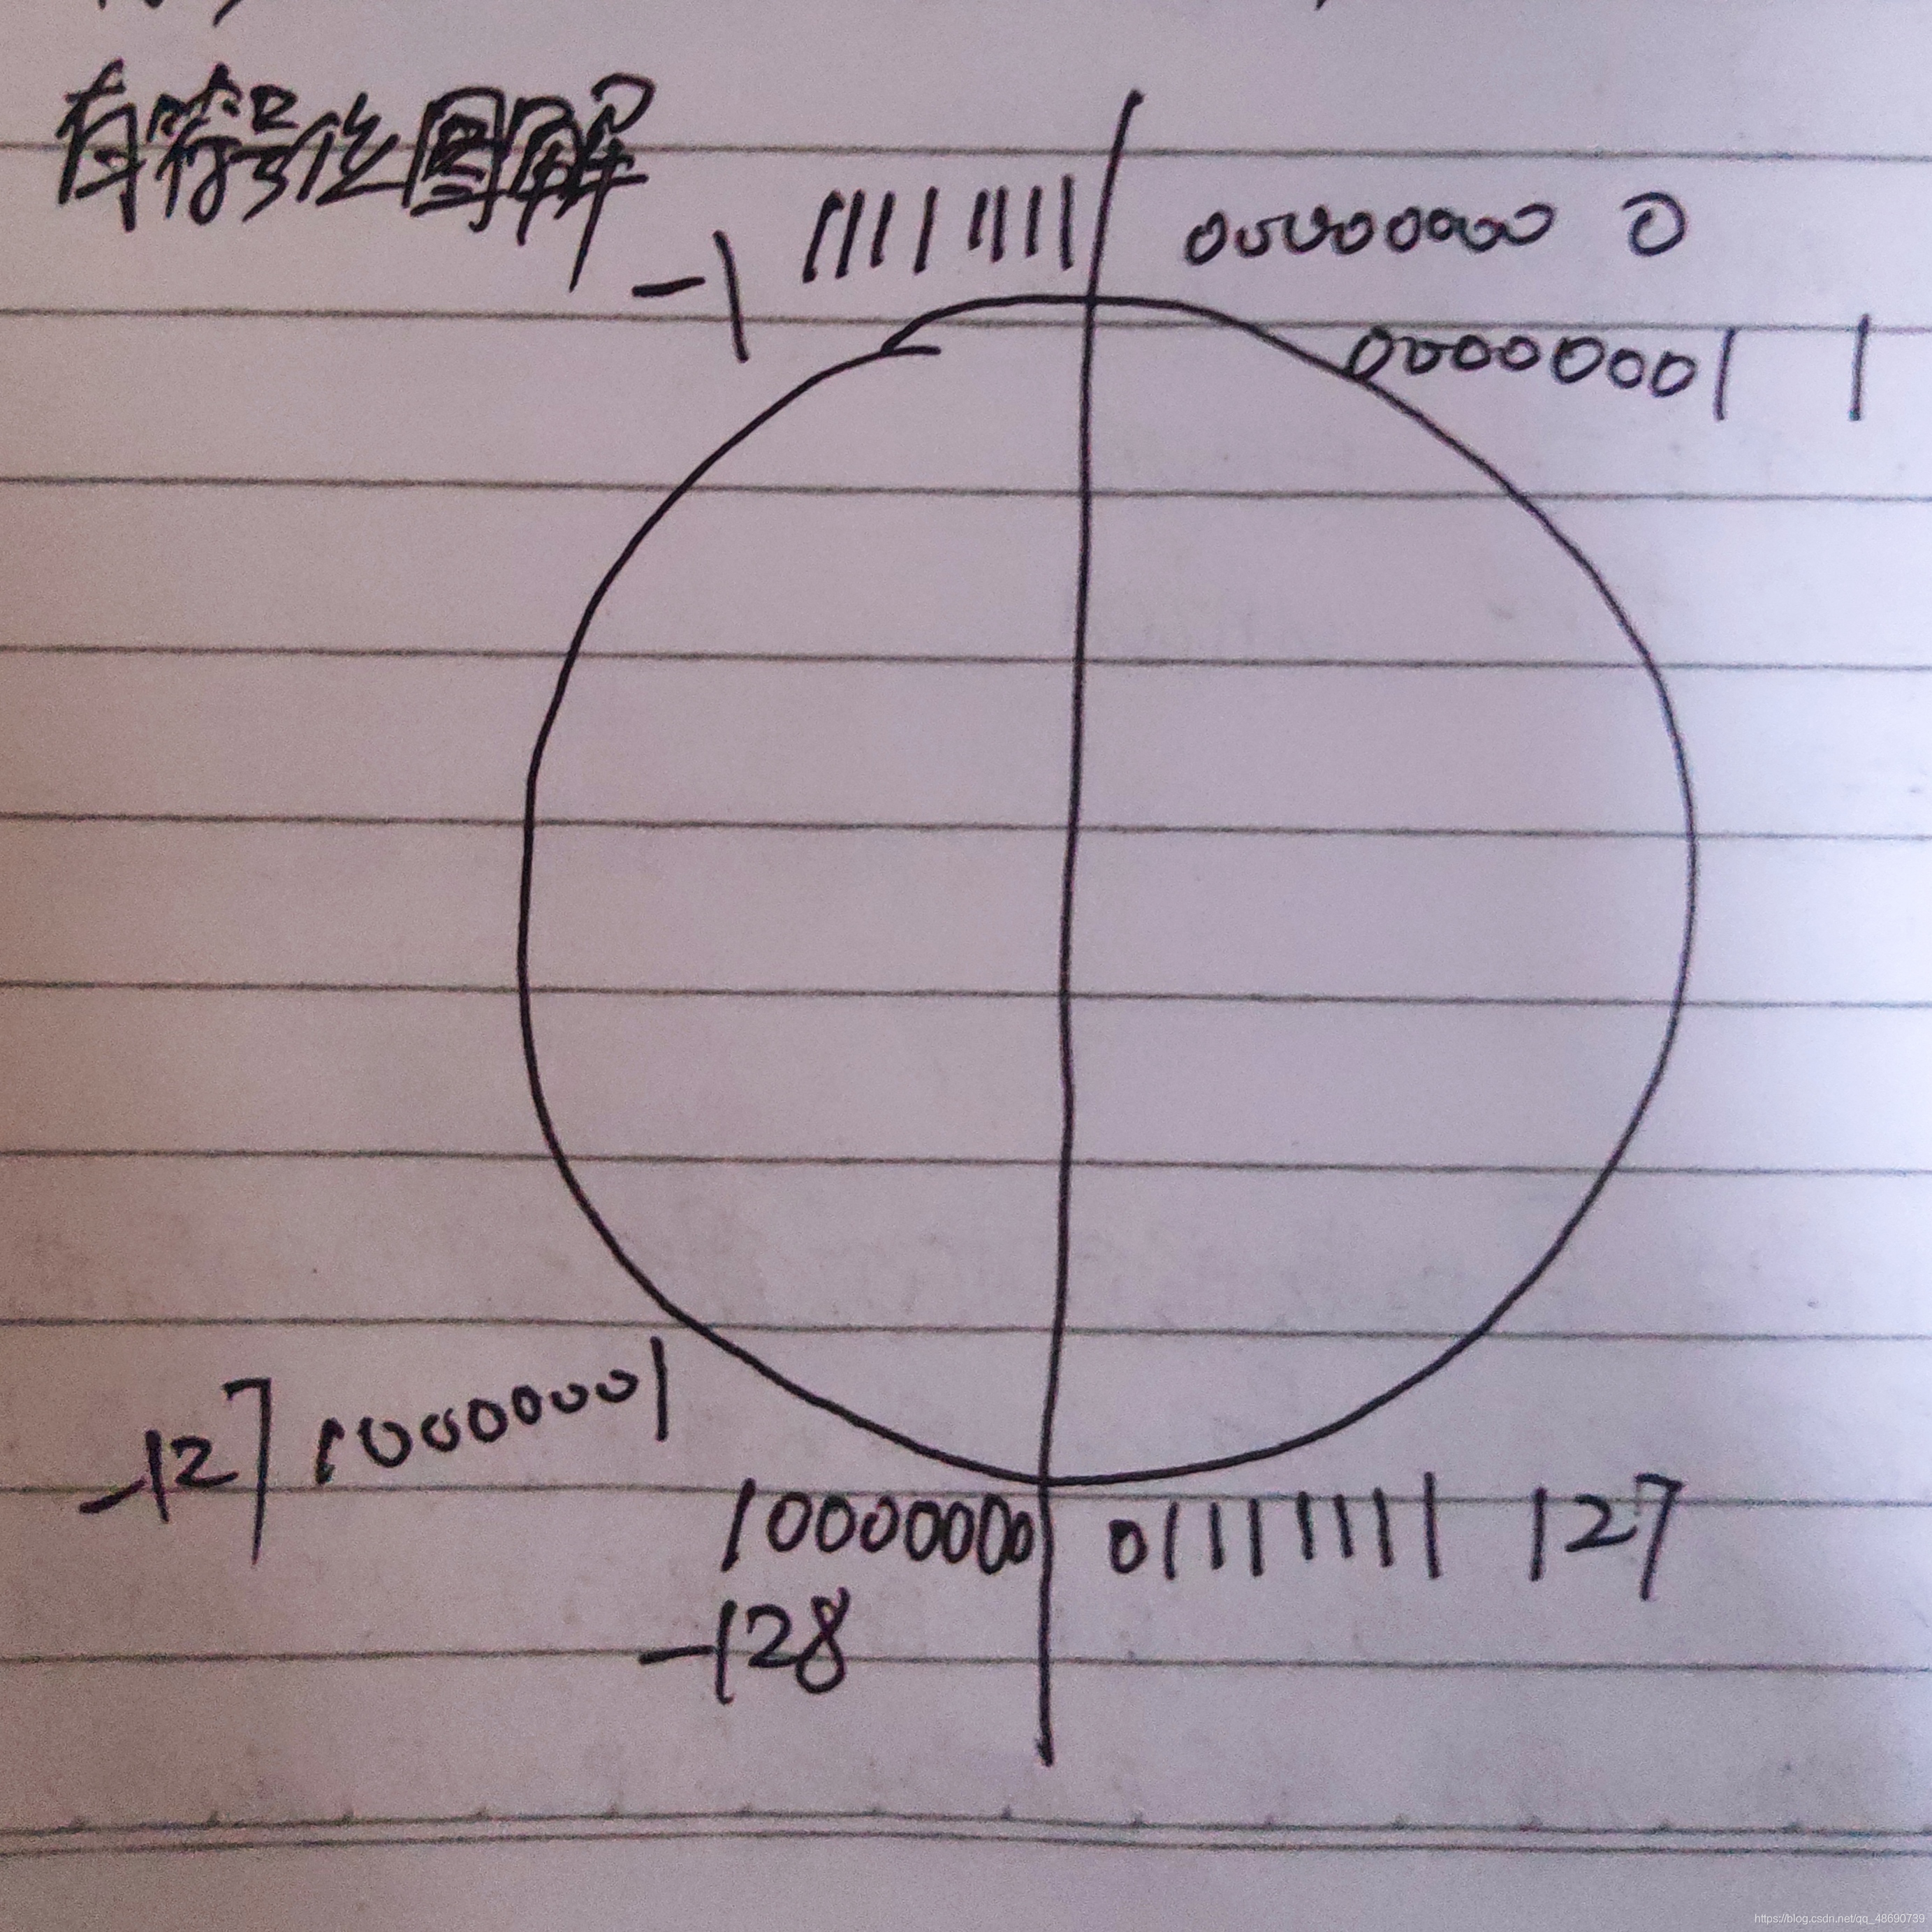 有符号位图解
-1 1111 1111 00000000 0
00000001 1
-127 10000001
10000000 01111111 127
-128
https://blog.csdn.net/qq_48690739